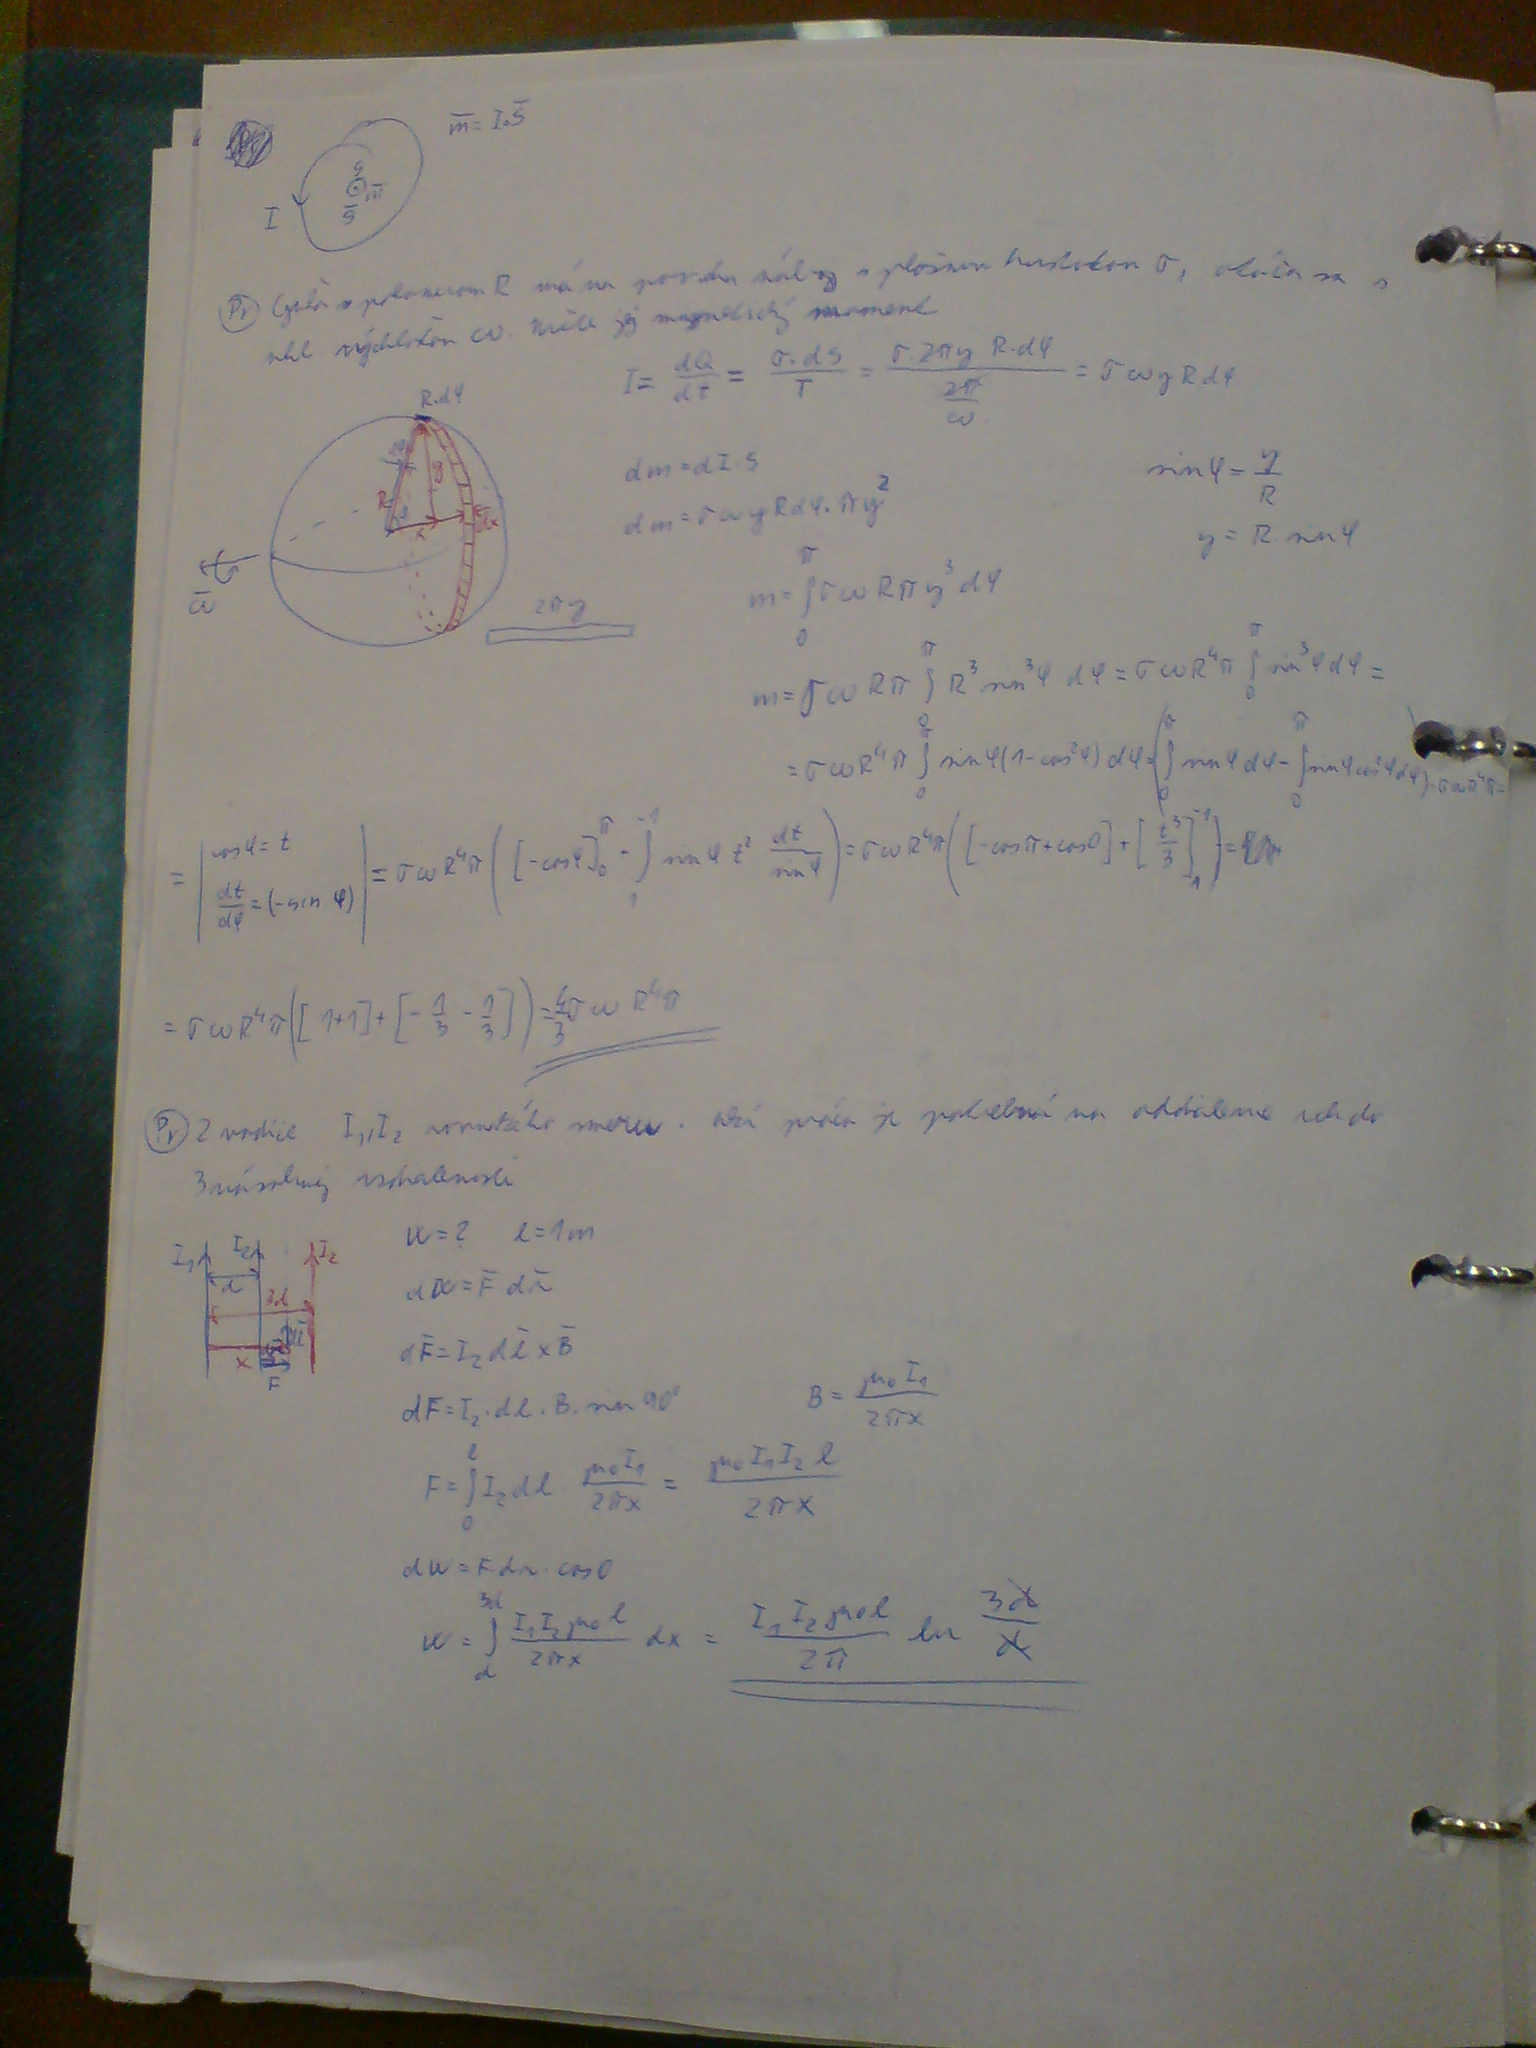 m̄ = I.S̄
I
S̄
Pr Guľa s polomerom R má na povrchu náboj s plošnou hustotou σ, otáča sa s
uhl. rýchlosťou ω. Určte jej magnetický moment
I = dQ/dt = σ.dS/T = σ.2πy R.dφ / (2π/ω) = σωyRdφ
R.dφ
dm = dI.S
sinφ = y/R
dm = σωyRdφ.πy²
y = R sinφ
R
y
x
dx
ω̄
2πy
m = ∫₀^π σωRπy³dφ
m = σωRπ ∫₀^π R³ sin³φ dφ = σωR⁴π ∫₀^π sin³φdφ =
= σωR⁴π ∫₀^π sinφ(1-cos²φ)dφ = (∫₀^π sinφdφ - ∫₀^π sinφcos²φdφ).σωR⁴π =
= | cosφ = t  dt/dφ = (-sinφ) | = σωR⁴π([-cosφ]₀^π + ∫₁^-1 sinφ t² dt/sinφ) = σωR⁴π([-cosπ+cos0] + [t³/3]₁^-1) =
= σωR⁴π([1+1]+[-1/3 - 1/3]) = 4/3 σωR⁴π
Pr 2 vodiče I₁, I₂ rovnakého smeru. Aká práca je potrebná na oddialenie ich do
3násobnej vzdialenosti
W = ? l = 1m
I₁ I₂ I₂
d
3d
x
F
dW = F̄ dr̄
dF̄ = I₂ dl̄ x B̄
dF = I₂.dl.B.sin 90°
B = μ₀I₁/2πx
F = ∫₀^l I₂dl. μ₀I₁/2πx = μ₀I₁I₂l/2πx
dW = F.dr.cos0
W = ∫_d^3d I₁I₂μ₀l/2πx dx = I₁I₂μ₀l/2π ln 3d/d